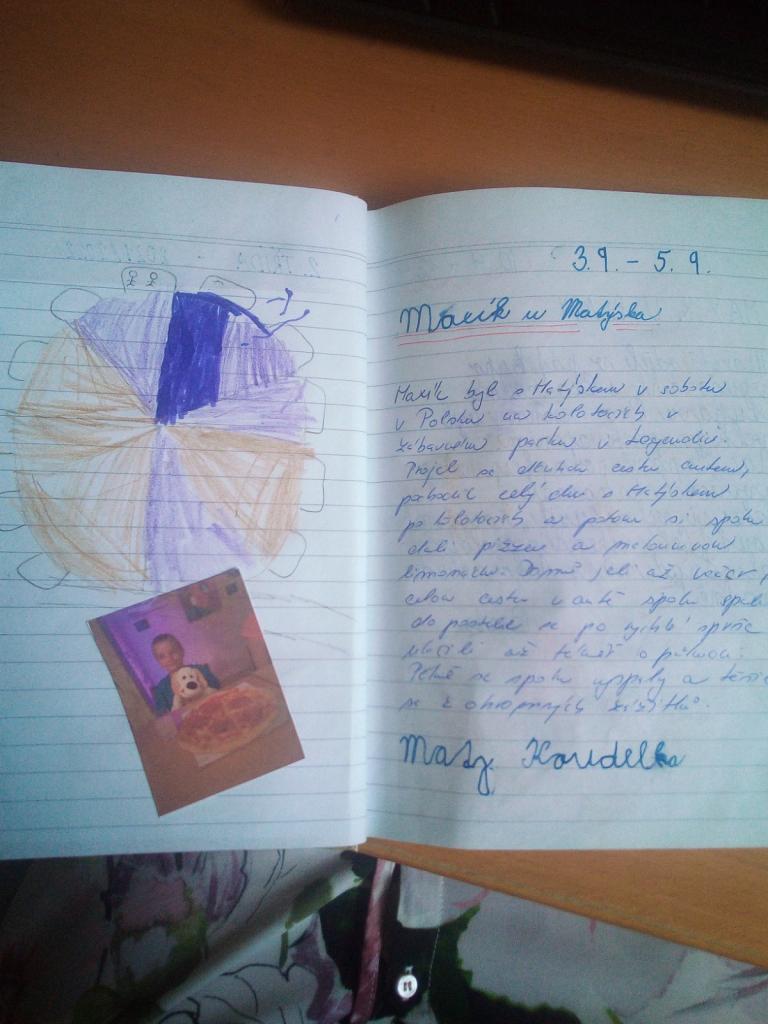 3.9. - 5.9.
Macík u Matýska
Macík byl s Matýskem v sobotu
v Polsku na kolotočích v
zábavném parku v
Projel se dlouhou cestu autem,
celý den s Matýskem
po kolotočích a potom si spolu
dali pizzu a melounovou
limonádu. Domů jeli až večer,
celou cestu v autě spolu spali
do postele se po rychlé sprše
až téměř o půlnoci.
Pěkně se spolu vyspali a těšili
se z ohromných zážitků.
Matj. Koudelka